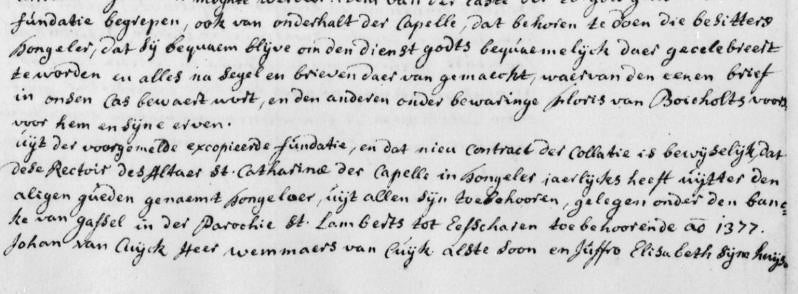 fundatie begrepen, ook van onderhalt der Capelle, dat behoren te doen die besitters
hongeler, dat sij bequaem blijve om den dienst godts bequaemelijck daer gecelebreert
te worden en alles na segel en brieven daer van gemaecht, waer van den eenen brief
in onsen Cas bewaert wort, en den anderen onder bewaringe floris van Boicholts voors
voor hem en sijne erven.
uijt der voorgemelde excopieerde fundatie, en dat nieu contract der Collatie is bewijselijck, dat
dese Rectoir des Altaer St. Catharinæ der Capelle in hongeler jaerlijcks heeft uijtter den
aligen gueden genaemt hongeloer, uijt allen sijn toebehooren, gelegen onder den banc-
ke van gassel in der Parochie St. Lamberts tot Eefscharen toebehoorende ao 1377.
Johan van Cuijck Heer wemmaers van Cuijk alste soon en Juffro Elisabeth sijne huijs